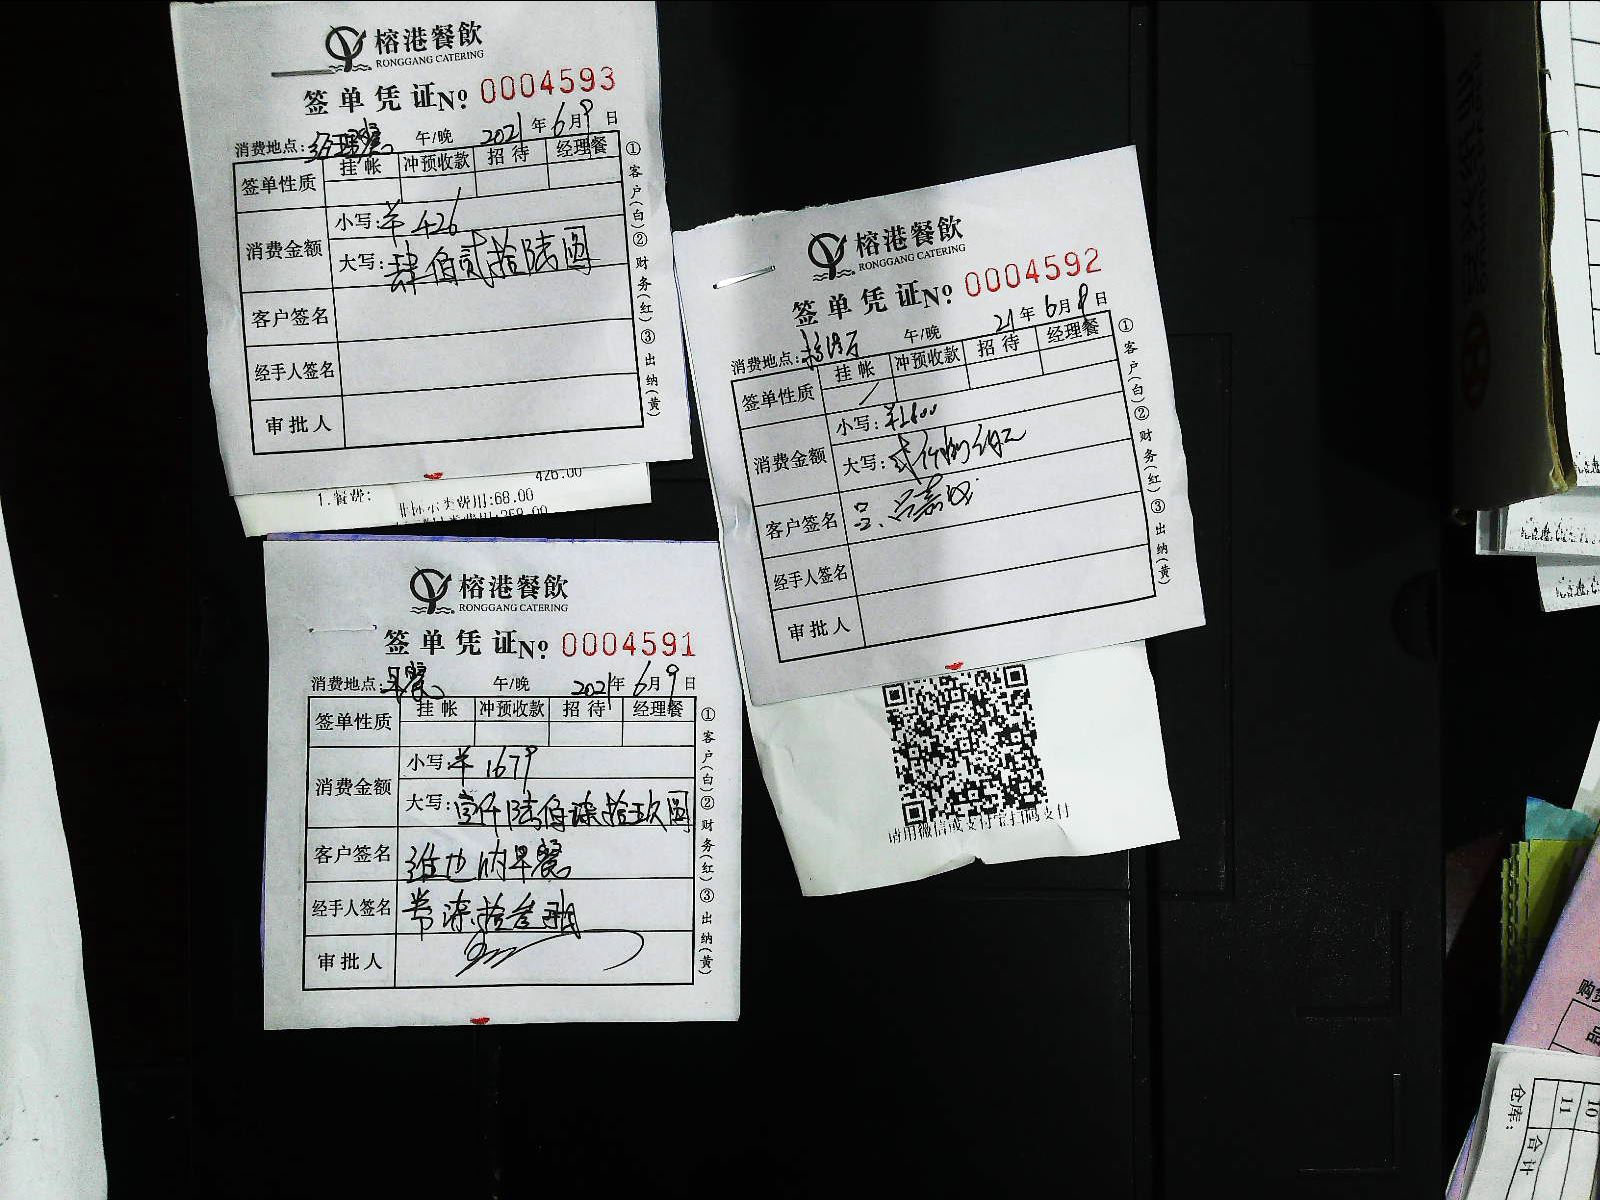 榕港餐飲
RONGGANG CATERING
签单凭证No 0004593
消费地点:经理餐 午/晚 2021年6月9日
签单性质 挂帐 冲预收款 招待 经理餐
消费金额
小写:羊426
大写:肆佰贰拾陆圆
客户签名
经手人签名
审批人
①客户(白)②财务(红)③出纳(黄)
426.00
1.餐费:
:68.00
榕港餐飲
RONGGANG CATERING
签单凭证No 0004592
消费地点: 午/晚 21年6月8日
签单性质 挂帐 冲预收款 招待 经理餐
消费金额
小写:
大写:
客户签名
经手人签名
审批人
①客户(白)②财务(红)③出纳(黄)
请用微信或支付宝扫码支付
榕港餐飲
RONGGANG CATERING
签单凭证No 0004591
消费地点:早餐 午/晚 2021年6月9日
签单性质 挂帐 冲预收款 招待 经理餐
消费金额
小写:羊1679
大写:壹仟陆佰柒拾玖圆
客户签名 维也纳早餐
经手人签名 柒拾叁
审批人
①客户(白)②财务(红)③出纳(黄)
购货
品
仓库:
11 10
合计